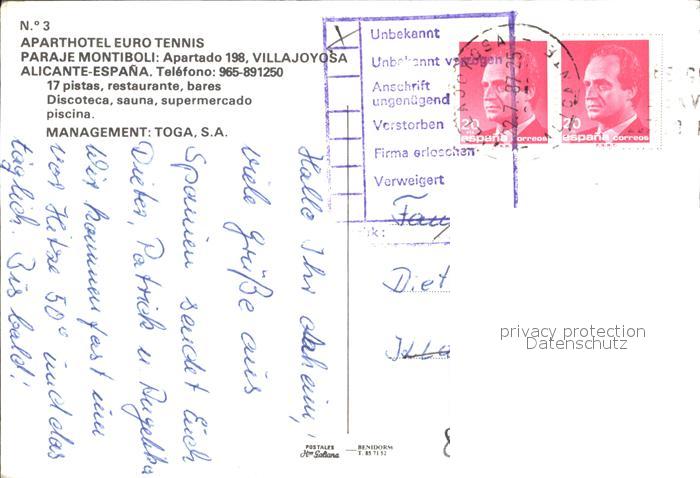 N.º 3
APARTHOTEL EURO TENNIS
PARAJE MONTIBOLI: Apartado 198, VILLAJOYOSA
ALICANTE-ESPAÑA. Teléfono: 965-891250
17 pistas, restaurante, bares
Discoteca, sauna, supermercado
piscina.
MANAGEMENT: TOGA, S.A.
Hallo Ihr daheim,
viele Grüße aus
Spanien sendet Euch
Dieter, Patrick u Angelika
Wir kommen fast um
vor Hitze 50° und das
täglich. Bis bald!
POSTALES
Hnos Galiana
BENIDORM
T. 85 71 52
Unbekannt
Unbekannt verzogen
Anschrift
ungenügend
Verstorben
Firma erloschen
Verweigert
20
españa correos
F.N.M.T.
20
españa correos
F.N.M.T.
Fam
Diet
privacy protection
Datenschutz